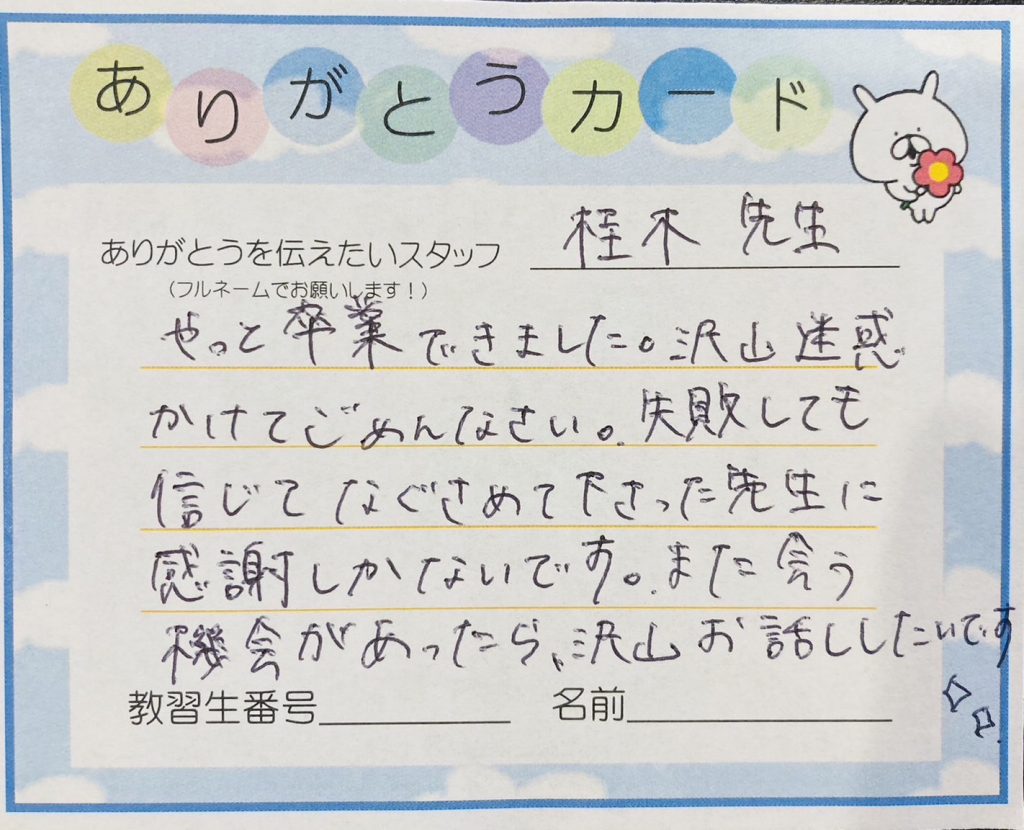 ありがとうカード
ありがとうを伝えたいスタッフ 桂木 先生
(フルネームでお願いします!)
やっと卒業できました。沢山迷惑
かけてごめんなさい。失敗しても
信じてなぐさめて下さった先生に
感謝しかないです。また会う
機会があったら、沢山お話ししたいです
教習生番号 名前